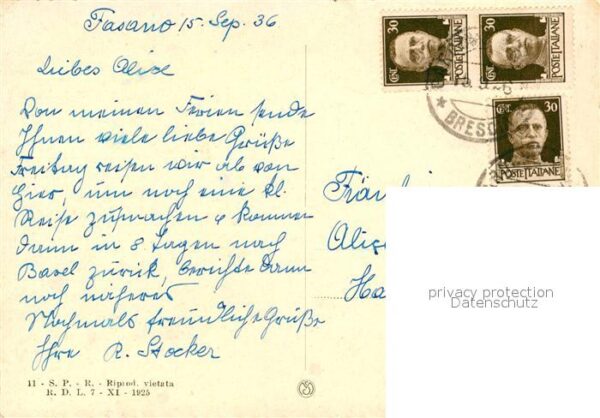 Fasano 15. Sep. 36
Liebes Alice
Von meinen Ferien sende
Ihnen viele liebe Grüße
Freitag reisen wir ab von
hier, um noch eine kl.
Reise zu machen & kommen
dann in 8 Tagen nach
Basel zurück, berichte dann
noch näheres
Nochmals freundliche Grüße
Ihre R. Stocker
11 - S. P. - R. - Riprod. vietata
R. D. L. 7 - XI - 1925
30
CENT.
POSTE ITALIANE
30
CENT.
POSTE ITALIANE
30
CENT.
POSTE ITALIANE
Fräulein
Alice
Ha
privacy protection
Datenschutz